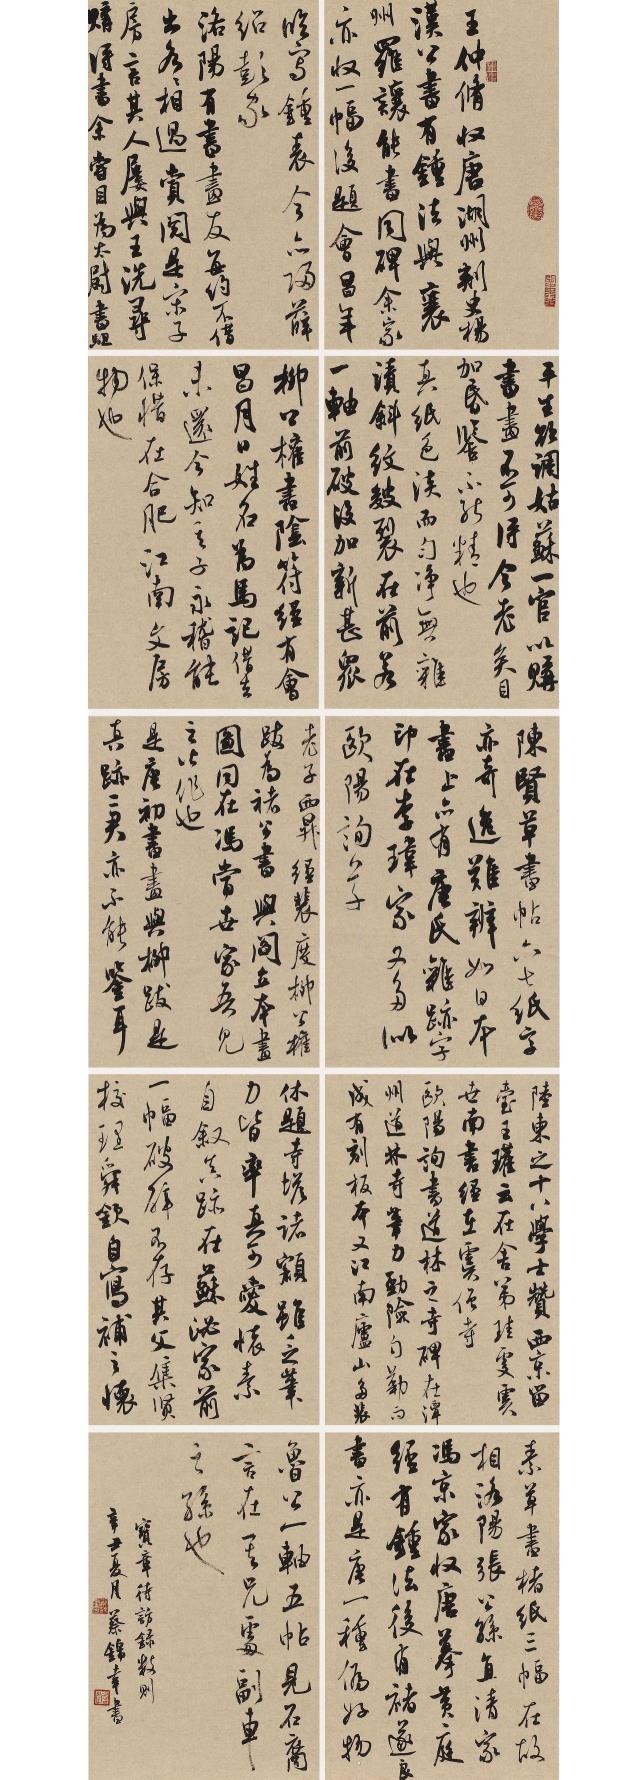 王仲脩收唐湖州刺史楊
漢公書有鍾法與襄
州羅讓能書同碑余家
亦收一幅後題會昌年
臨寫鍾表今亦歸薛
紹彭家
洛陽有書畫友每約不借
出各各相過賞閱是宋子
房言其人屢與王詵尋
購得書余嘗目為太尉書駔
平生欲調姑蘇一官以購
書畫不可得今老矣目
加昏鑒不能精也
真紙色淡而勻淨無雜
漬斜紋皴裂在前若
一軸前破後加新甚眾
柳公權書陰符經有會
昌月日姓名為馬記借去
未還今知其子永稽能
保惜在合肥江南文房
物也
陳賢草書帖六七紙字
亦奇逸難辨如日本
書上亦有唐氏雜跡字
印在李瑋家又多似
歐陽詢草
老子西昇經裴度柳公權
跋為褚公書與閻立本畫
圖同在馮當世家吾見
之比他也
是唐初書畫與柳跋是
真跡二君亦不能鑒耳
陸東之十八學士贊西京留
臺王瓘云在舍弟珪處虞
世南書經在虞僧寺
歐陽詢書道林之寺碑在潭
州道林寺筆力勁險勾勒而
成有刻板本又江南廬山多裴
休題寺塔諸額雖乏筆
力皆率真可愛懷素
自敘真跡在蘇泌家前
一幅破碎不存其父集賢
校理舜欽自寫補之懷
素草書楮紙三幅在故
相洛陽張公孫直清家
馮京家收唐摹黃庭
經有鍾法後有褚遂良
書亦是唐一種偽好物
魯公一軸五帖見石裔
言在其兄處副車
之孫也
寶章待訪錄數則
辛丑夏月蔡錦幸書